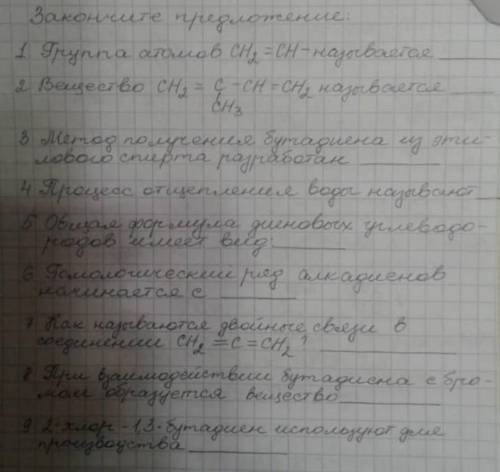 Закончите предложение:
1 Группа атомов CH₂=CH- называется ____
2 Вещество CH₂ = C - CH = CH₂ называется ____
CH₃
3 Метод получения бутадиена из эти-
лового спирта разработан ____
4 Процесс отщепления воды называют ____
5 Общая формула диеновых углеводо-
родов имеет вид: ____
6 Гомологический ряд алкадиенов
начинается с ____
7 Как называются двойные связи в
соединении CH₂ = C = CH₂? ____
8 При взаимодействии бутадиена с бро-
мом образуется вещество ____
9 2-хлор-1,3-бутадиен используют для
производства ____